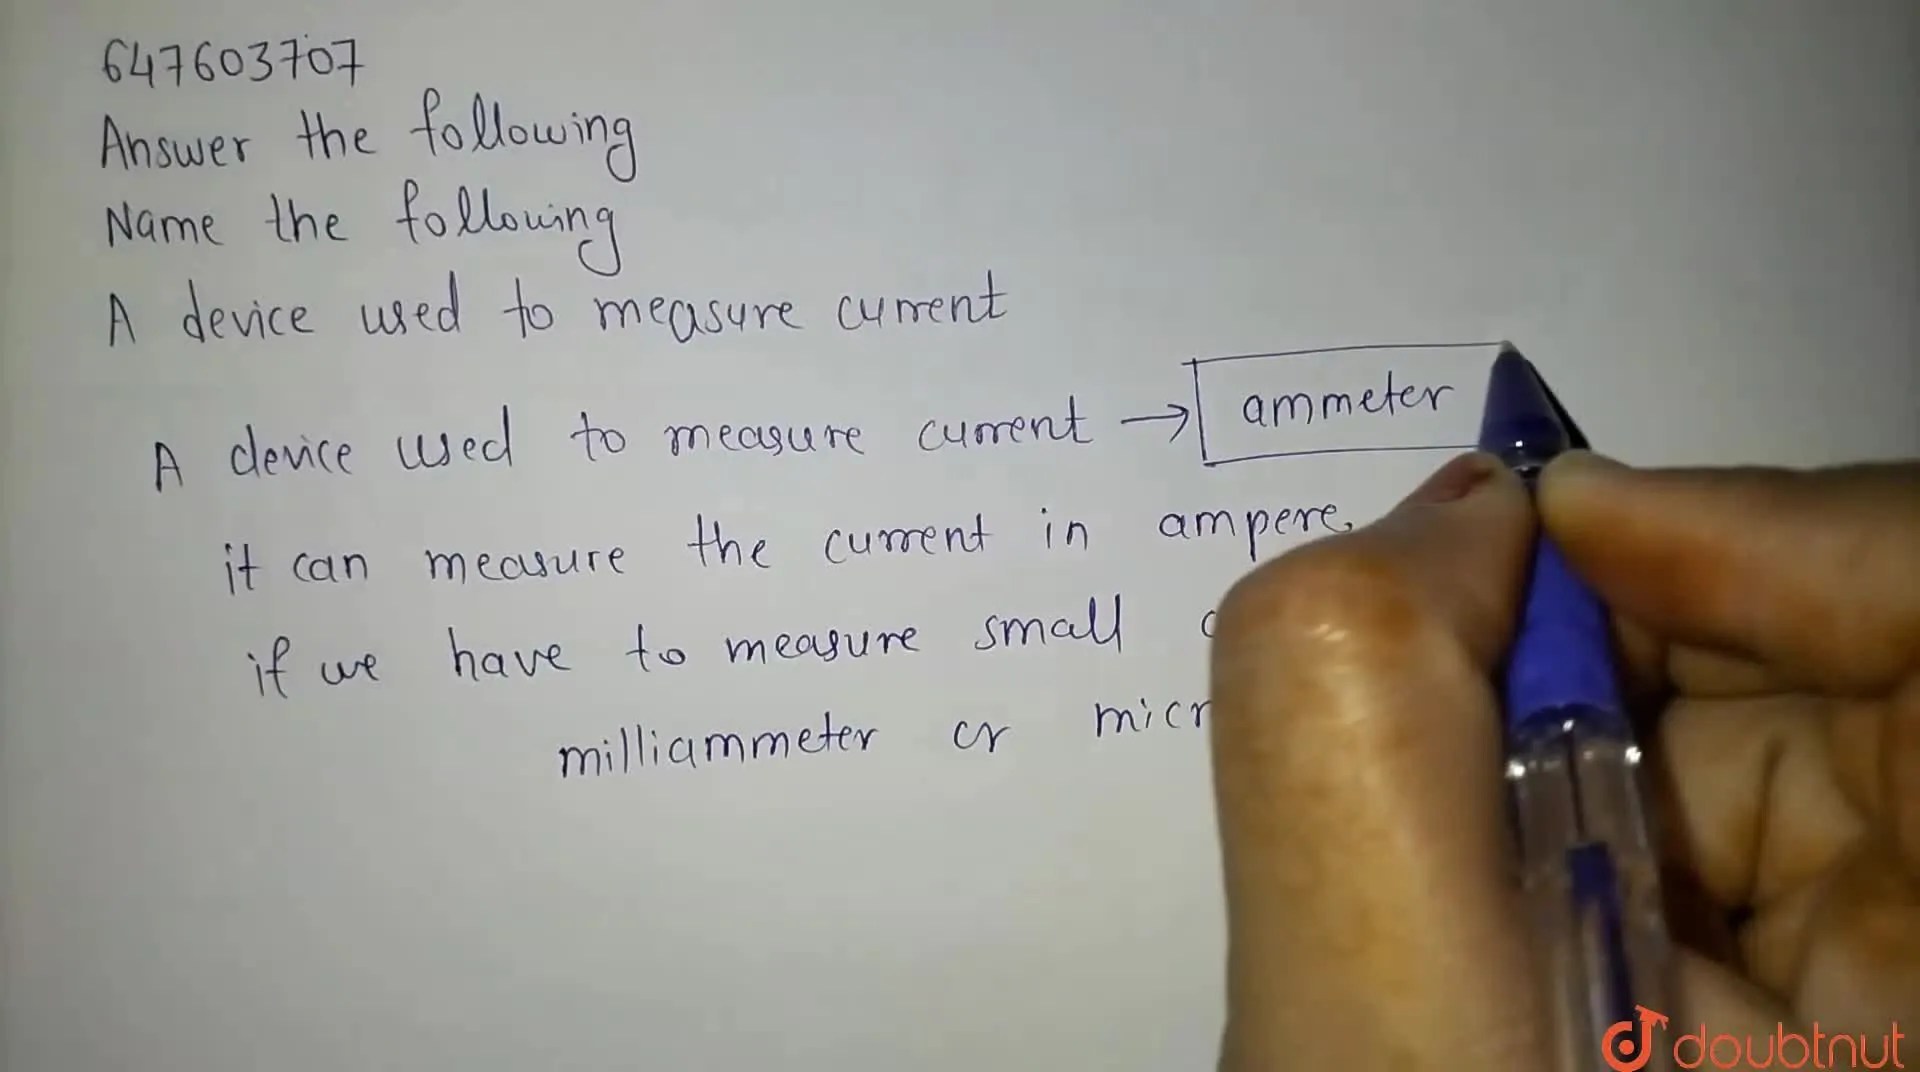 647603707
Answer the following
Name the following
A device used to measure current
A device used to measure current → ammeter
it can measure the current in ampere.
if we have to measure small
milliammeter or micr
doubtnut